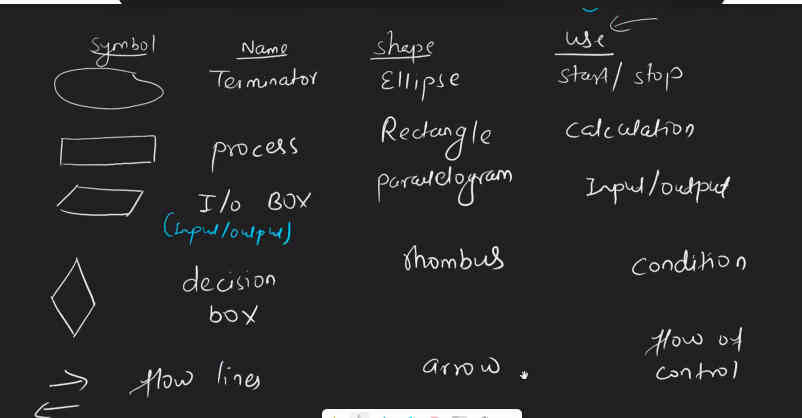 Symbol Name shape use
Terminator Ellipse start/stop
process Rectangle calculation
I/o BOX parallelogram Input/output
(Input/output)
decision rhombus condition
box
flow lines arrow flow of
control